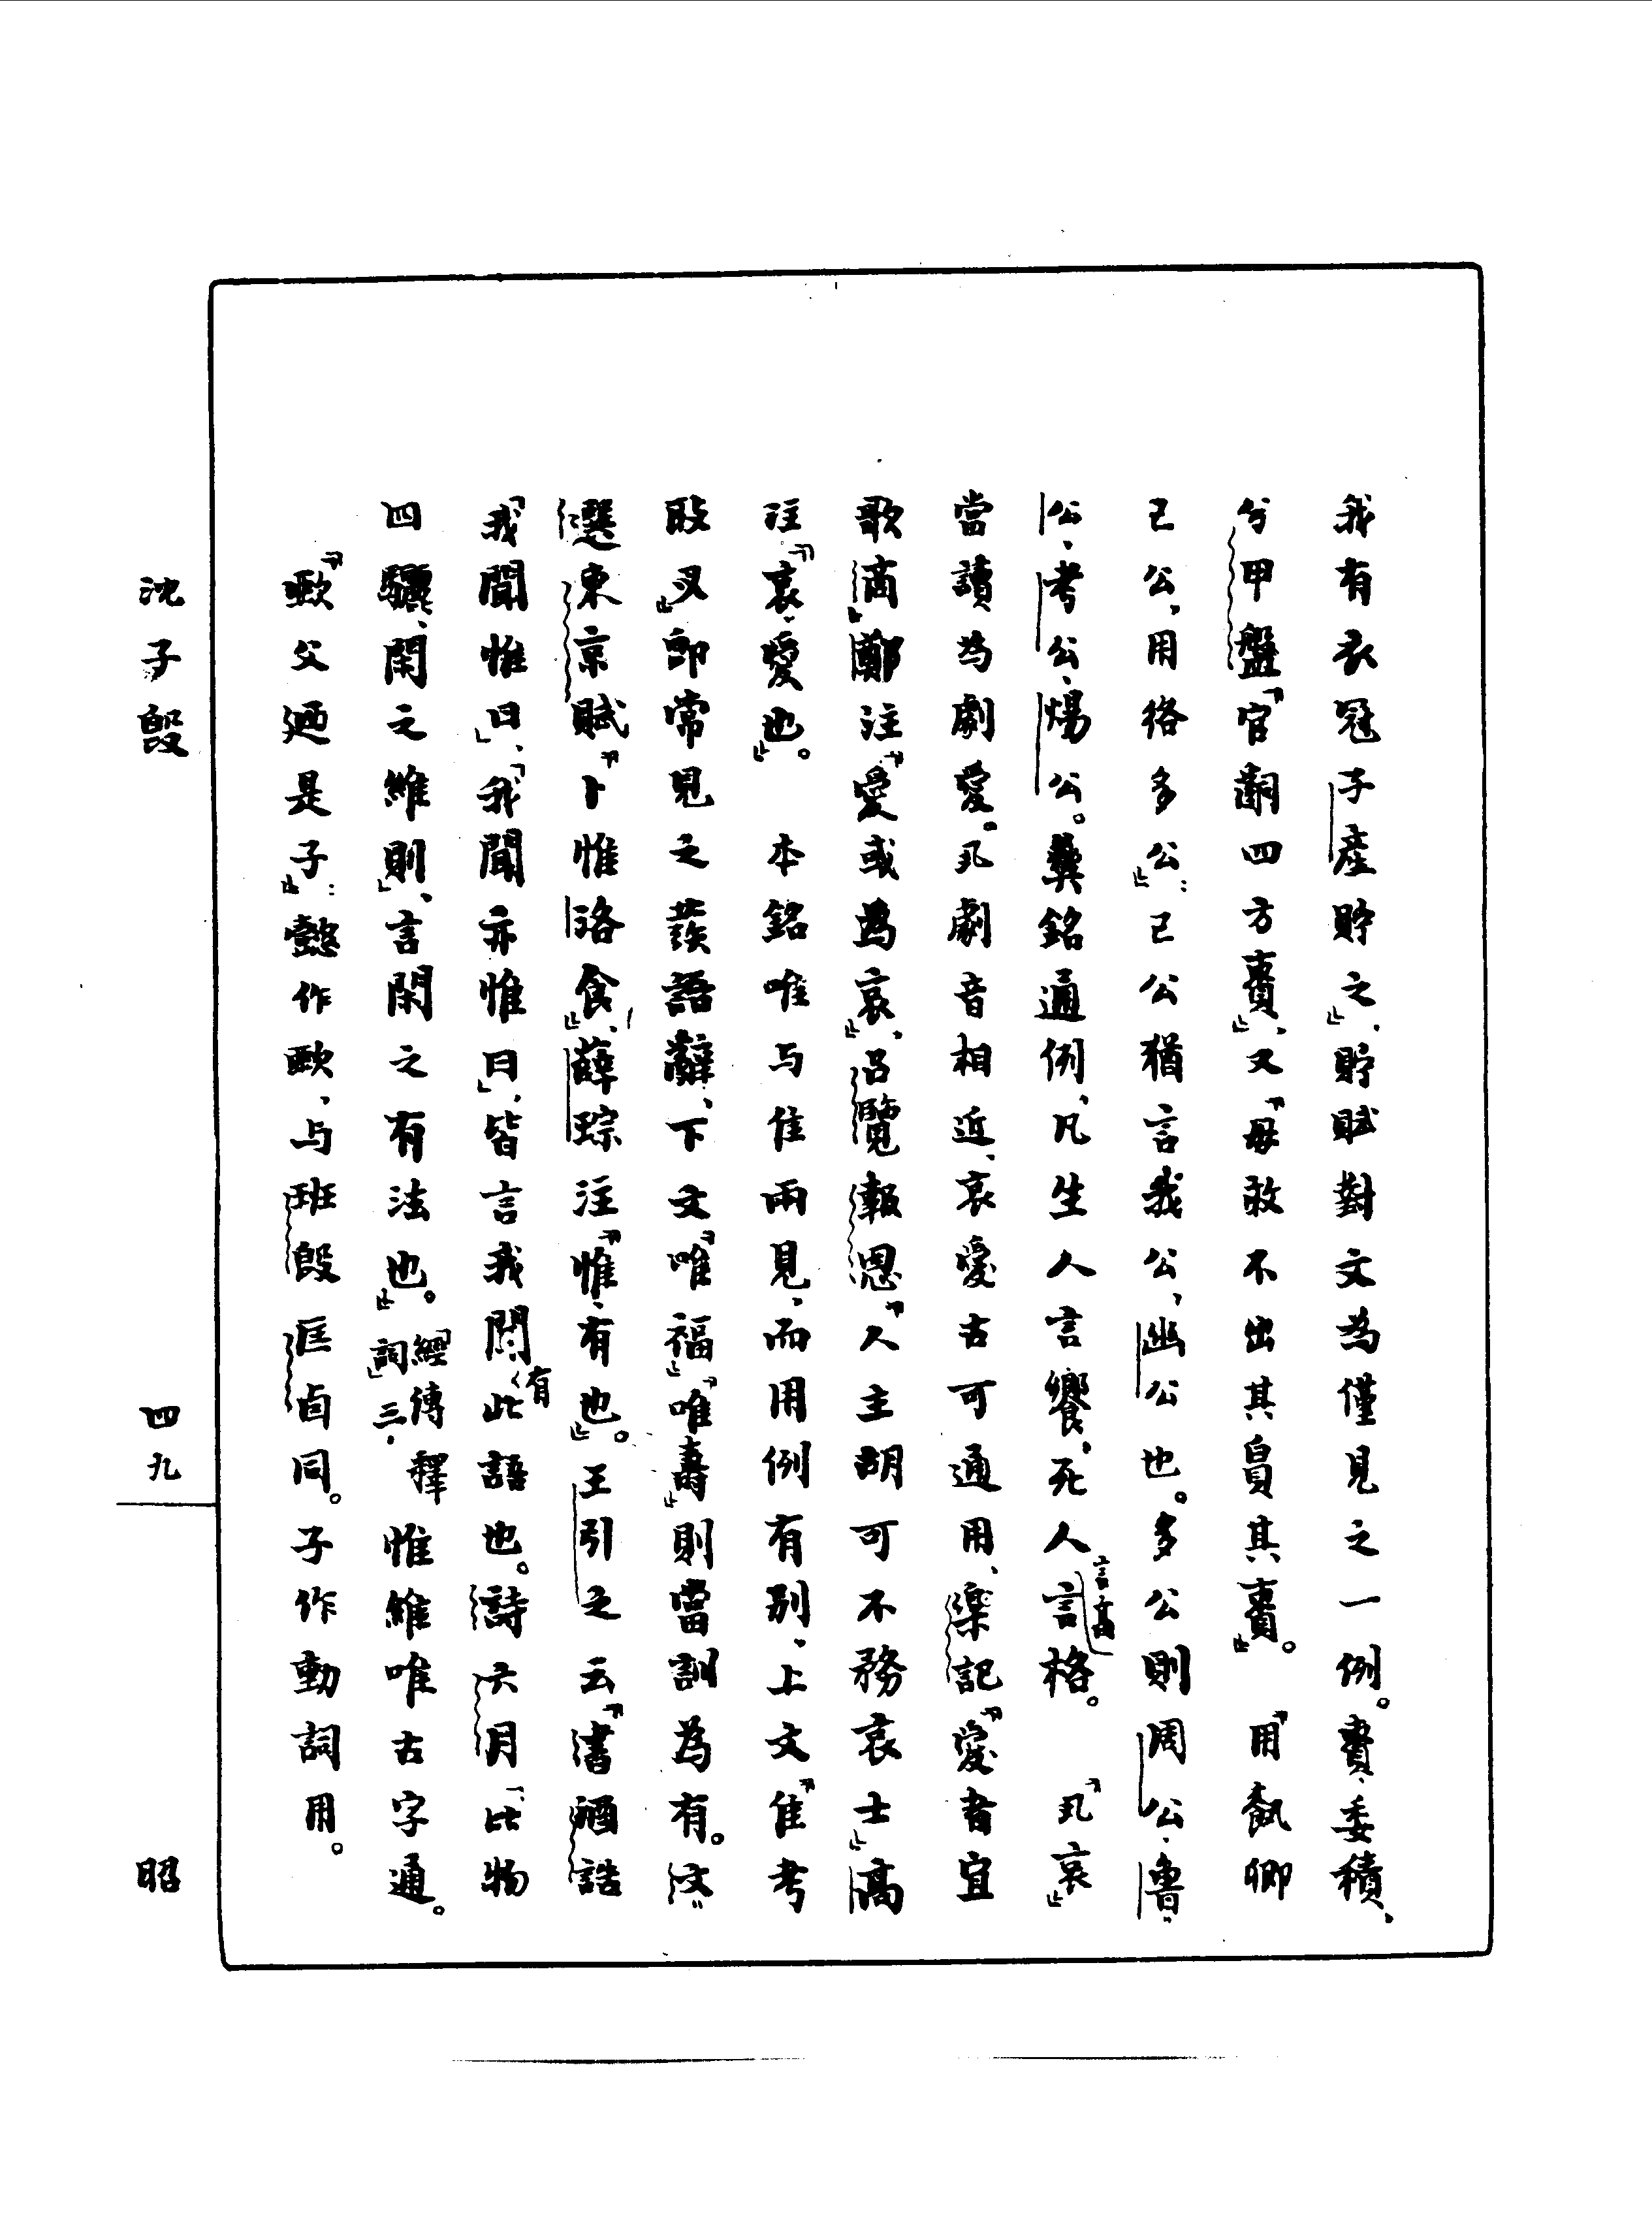 我有衣冠子產貯之』、貯賦對文為僅見之一例。賨、委積、
兮甲盤『官𤔲四方賨』、又『毋敢不出其㠯其賨』。　『用𩛥卿
己公、用格多公』：己公猶言我公、幽公也。多公則周公、魯〃
公、考公、煬公。彝銘通例、凡生人言饗、死人言𩫖言格。　『丮哀』
當讀為劇愛。丮劇音相近、哀愛古可通用、樂記『愛者宜
歌商』鄭注『愛或為哀』、呂覽報恩『人主胡可不務哀士』高
注『哀、愛也』。　本銘唯与隹兩見、而用例有別、上文『隹考
𣪘又』即常見之發語辭、下文『唯福』『唯壽』則當訓為有。文〃
選東京賦『卜惟洛食』、薛琮注『惟、有也』。王引之云『書酒誥
「我聞惟曰」、「我聞亦惟曰」、皆言我聞有此語也。詩六月「比物
四驪、閑之維則」、言閑之有法也』。「經傳釋詞」三、惟維唯古字通。
『𣤶父廼是子』：懿作𣤶、与班𣪘匡卣同。子作動詞用。
沈子𣪘
四九
昭